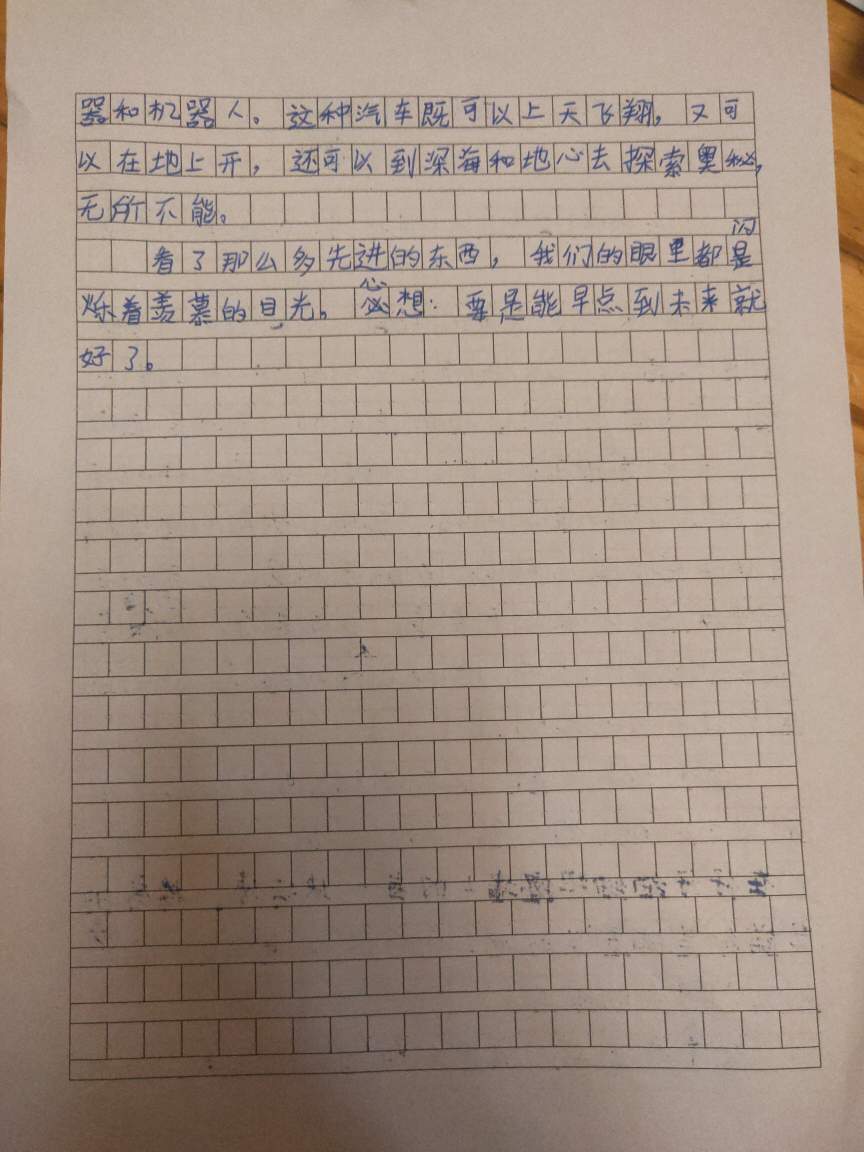 器和机器人。这种汽车既可以上天飞翔，又可
以在地上开，还可以到深海和地心去探索奥秘，
无所不能。
闪
看了那么多先进的东西，我们的眼里都是
烁着羡慕的目光。必想：要是能早点到未来就
心
好了。